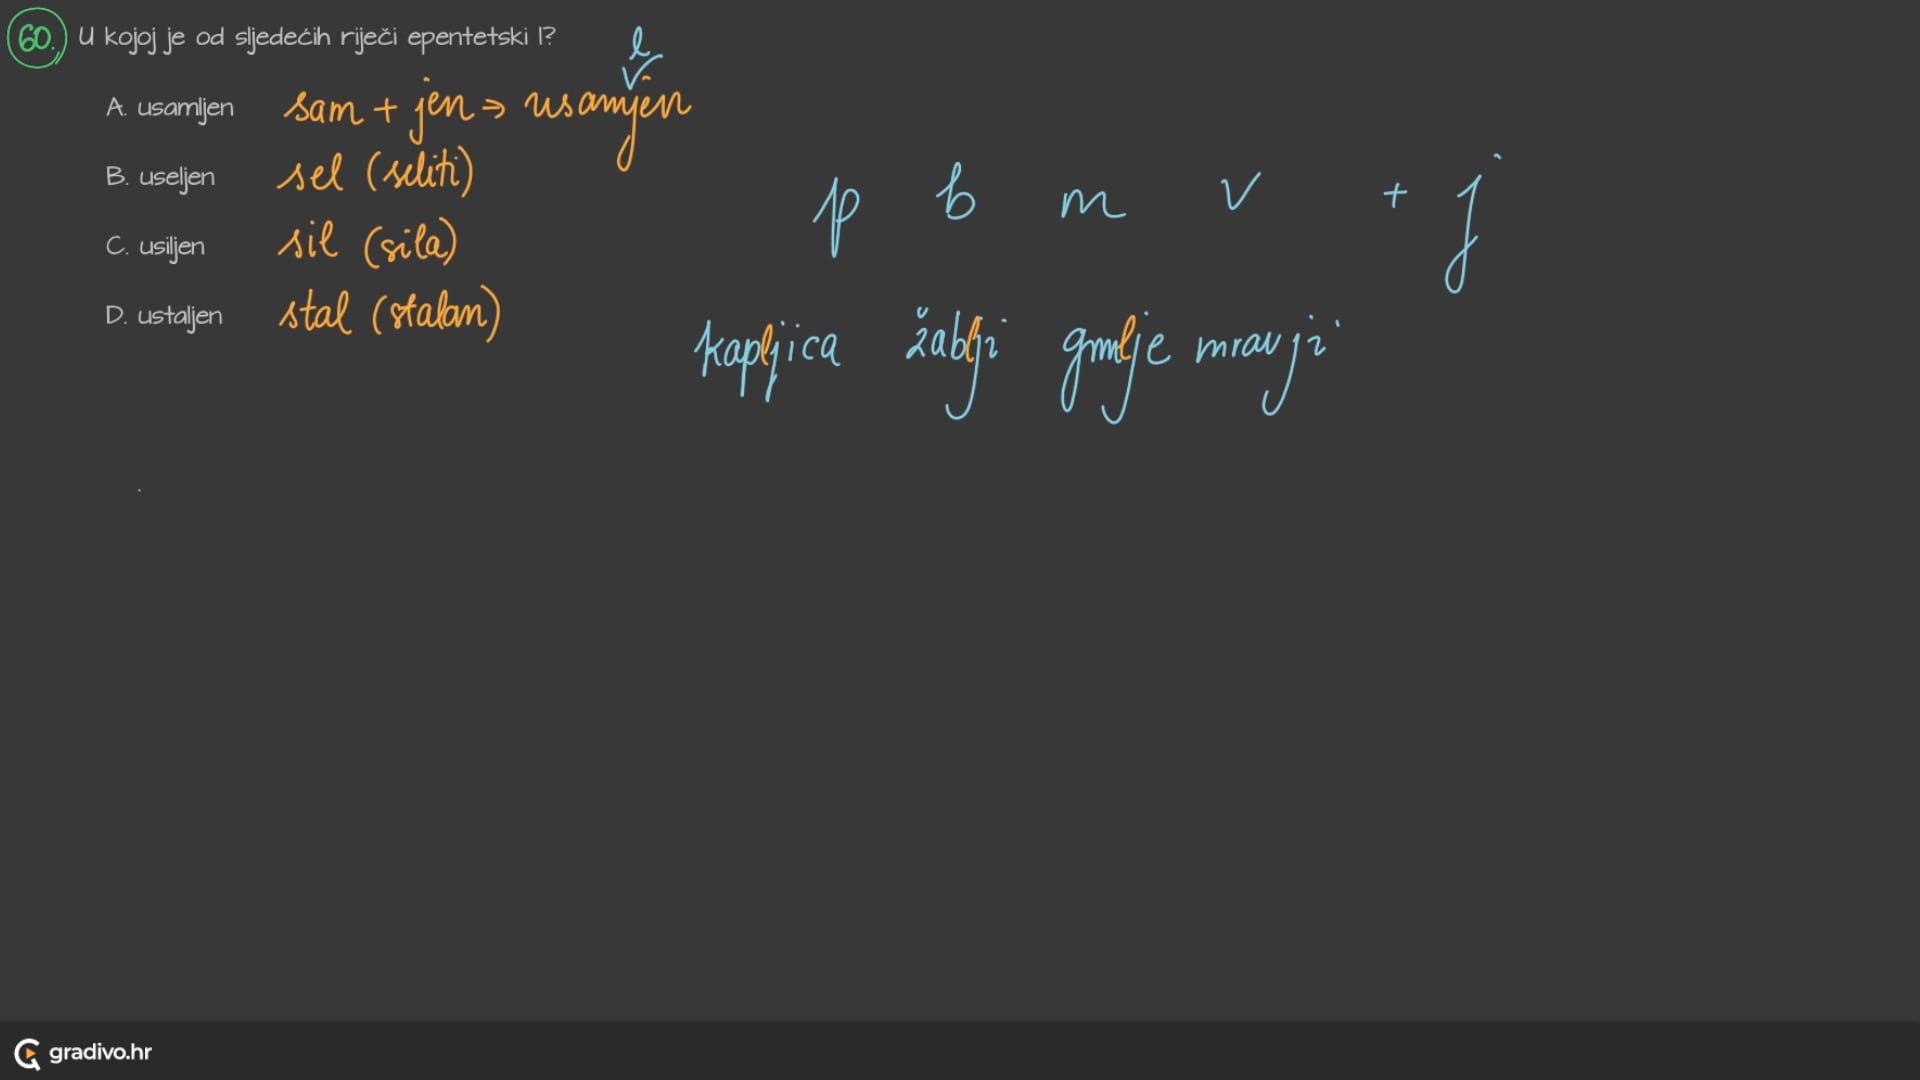 60. U kojoj je od sljedećih riječi epentetski l?
l
A. usamljen sam + jen → usamjen
B. useljen sel (seliti)
p b m v + j
C. usiljen sil (sila)
D. ustaljen stal (stalan)
kapljica žablji grmlje mravji
gradivo.hr